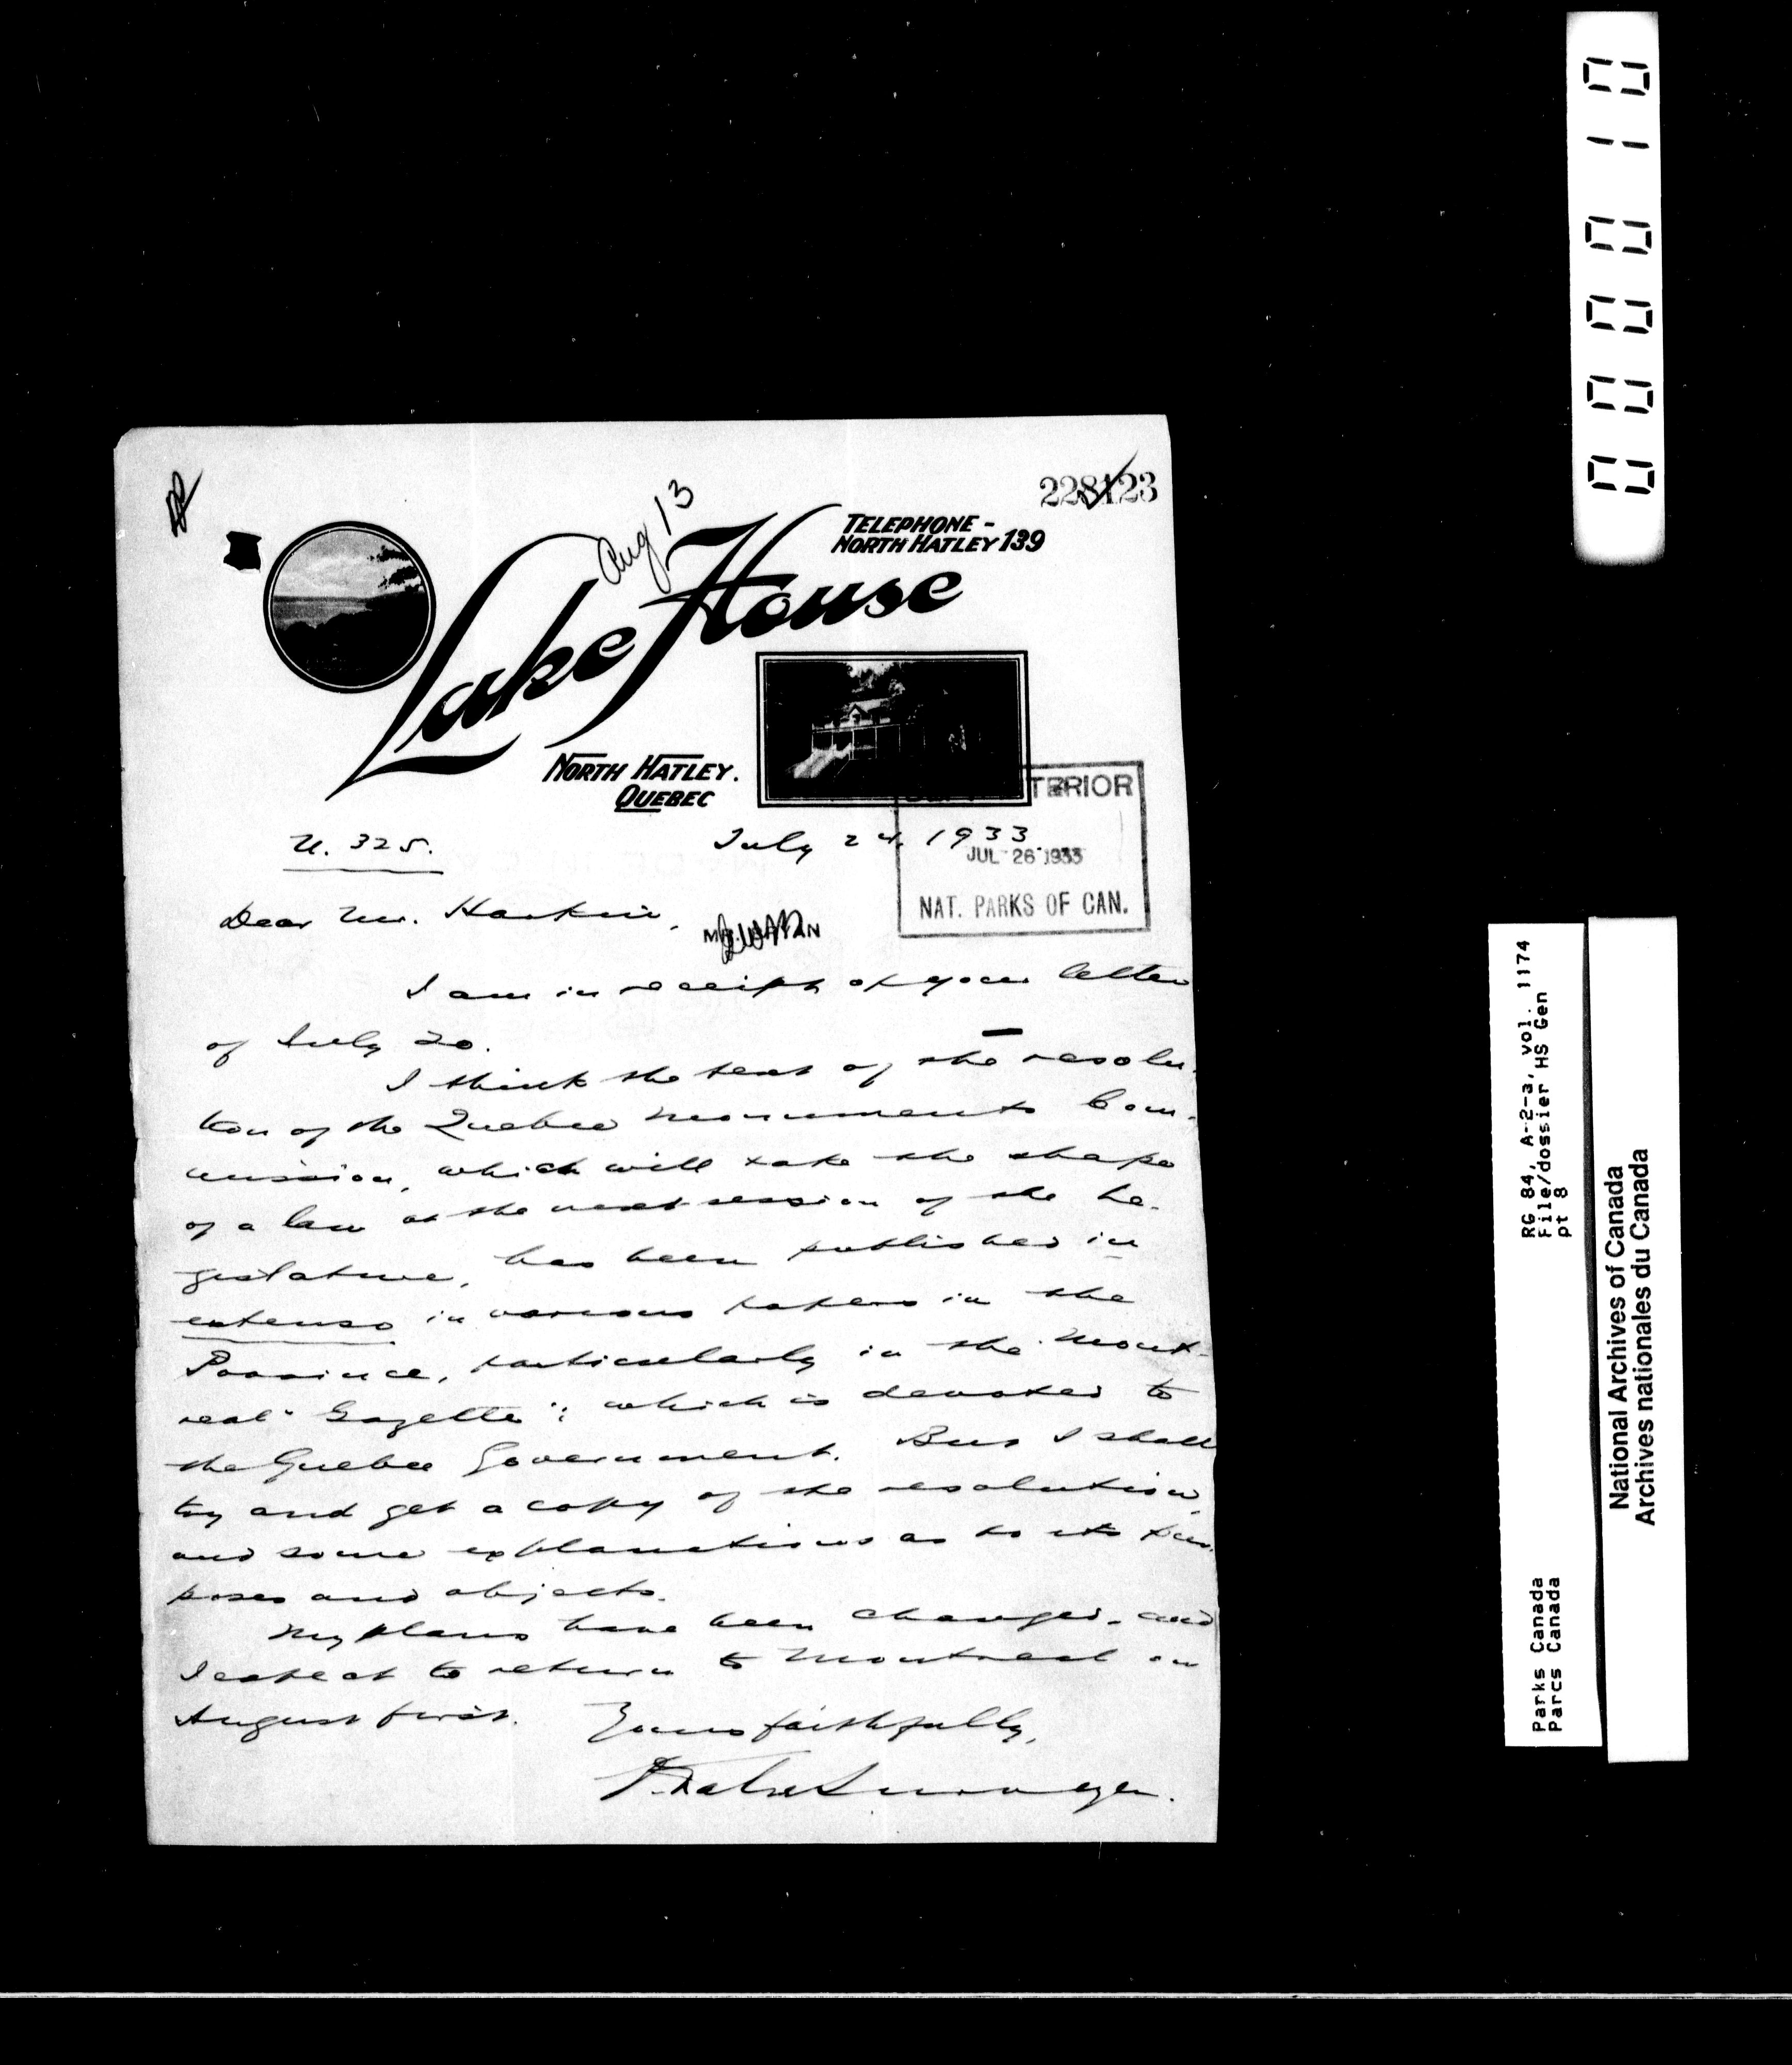 228123
Aug 13
TELEPHONE -
NORTH HATLEY 139
Lake House
NORTH HATLEY.
QUEBEC
TERIOR
JUL 26 1933
NAT. PARKS OF CAN.
U. 325.
July 24, 1933.
Dear Mr. Harkin,
I am in receipt of your letter
of July 20.
I think the text of the resolu-
tion of the Quebec Monuments Com-
mission, which will take the shape
of a law at the next session of the Le-
gislature, has been published in
extenso in various papers in the
Province, particularly in the Mont-
real "Gazette", which is devoted to
the Quebec Government. But I shall
try and get a copy of the resolution,
and some explanations as to its pur-
poses and objects.
My plans have been changed, and
I expect to return to Montreal on
August first.
Yours faithfully,
00010
RG 84, A-2-a, vol. 1174
File/dossier HS Gen
pt 8
Parks Canada
Parcs Canada
National Archives of Canada
Archives nationales du Canada